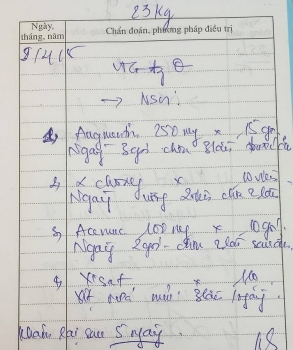 23 kg
Ngày, tháng, năm
Chẩn đoán, phương pháp điều trị
→ NSMT:
1) Augmentin 250 mg × 15 gói
Ngày 3 gói chia 3 lần
2) α choay × 10 viên
Ngày uống 2 viên chia 2 lần
3) Acemuc 100 mg × 10 gói
Ngày 2 gói - chia 2 lần sau ăn
4) Xisat × 1 lọ
Xịt mũi 3 lần / ngày.
Khám lại sau 5 ngày.